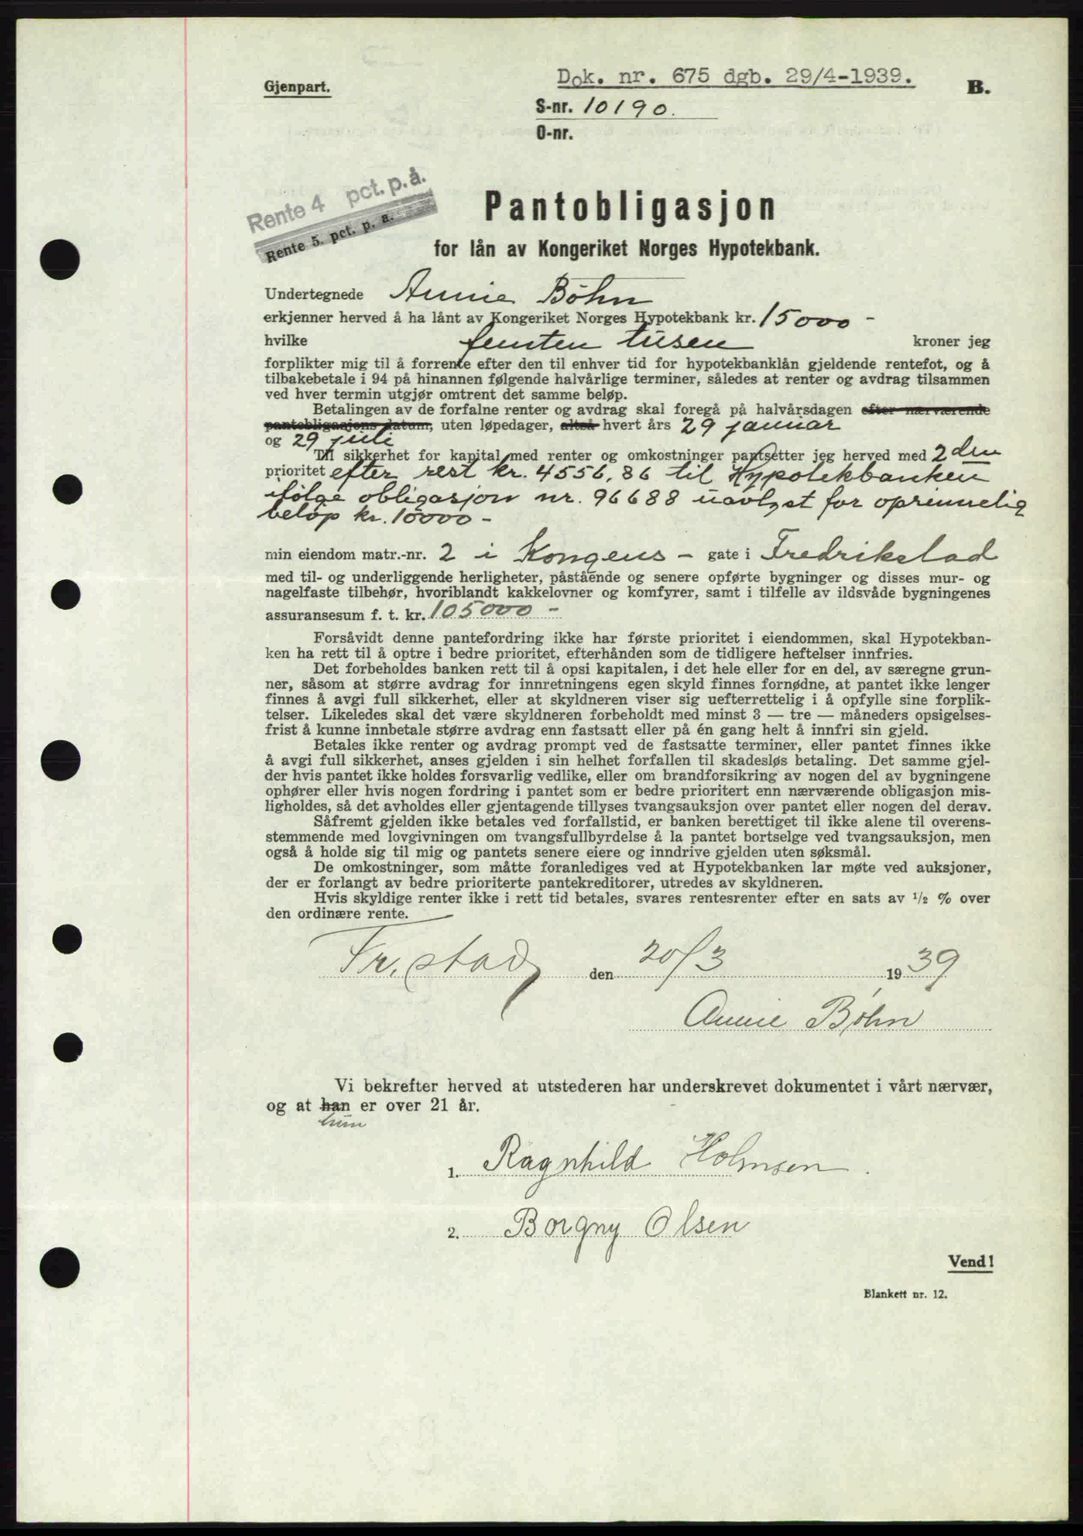 Gjenpart.
Dok. nr. 675 dgb. 29/4-1939.
B.
S-nr. 10190.
O-nr.
Rente 4 pct. p. å.
Rente 5. pct. p. a.
Pantobligasjon
for lån av Kongeriket Norges Hypotekbank.
Undertegnede Annie Bøhn
erkjenner herved å ha lånt av Kongeriket Norges Hypotekbank kr. 15000 -
hvilke femten tusen kroner jeg
forplikter mig til å forrente efter den til enhver tid for hypotekbanklån gjeldende rentefot, og å
tilbakebetale i 94 på hinannen følgende halvårlige terminer, således at renter og avdrag tilsammen
ved hver termin utgjør omtrent det samme beløp.
Betalingen av de forfalne renter og avdrag skal foregå på halvårsdagen efter nærværende
pantobligasjons datum, uten løpedager, altså hvert års 29 januar
og 29 juli
Til sikkerhet for kapital med renter og omkostninger pantsetter jeg herved med 2 den
prioritet efter rest kr. 4556,86 til Hypotekbanken
ifølge obligasjon nr. 96688 uavlyst for oprinnelig
beløp kr. 10000 -
min eiendom matr.-nr. 2 i Kongens - gate i Fredrikstad
med til- og underliggende herligheter, påstående og senere opførte bygninger og disses mur- og
nagelfaste tilbehør, hvoriblandt kakkelovner og komfyrer, samt i tilfelle av ildsvåde bygningenes
assuransesum f. t. kr. 105000 -
Forsåvidt denne pantefordring ikke har første prioritet i eiendommen, skal Hypotekban-
ken ha rett til å optre i bedre prioritet, efterhånden som de tidligere heftelser innfries.
Det forbeholdes banken rett til å opsi kapitalen, i det hele eller for en del, av særegne grun-
ner, såsom at større avdrag for innretningens egen skyld finnes fornødne, at pantet ikke lenger
finnes å avgi full sikkerhet, eller at skyldneren viser sig uefterrettelig i å opfylle sine forplik-
telser. Likeledes skal det være skyldneren forbeholdt med minst 3 — tre — måneders opsigelses-
frist å kunne innbetale større avdrag enn fastsatt eller på én gang helt å innfri sin gjeld.
Betales ikke renter og avdrag prompt ved de fastsatte terminer, eller pantet finnes ikke
å avgi full sikkerhet, anses gjelden i sin helhet forfallen til skadesløs betaling. Det samme gjel-
der hvis pantet ikke holdes forsvarlig vedlike, eller om brandforsikring av nogen del av bygningene
ophører eller hvis nogen fordring i pantet som er bedre prioritert enn nærværende obligasjon mis-
ligholdes, så det avholdes eller gjentagende tillyses tvangsauksjon over pantet eller nogen del derav.
Såfremt gjelden ikke betales ved forfallstid, er banken berettiget til ikke alene til overens-
stemmende med lovgivningen om tvangsfullbyrdelse å la pantet bortselge ved tvangsauksjon, men
også å holde sig til mig og pantets senere eiere og inndrive gjelden uten søksmål.
De omkostninger, som måtte foranlediges ved at Hypotekbanken lar møte ved auksjoner,
der er forlangt av bedre prioriterte pantekreditorer, utredes av skyldneren.
Hvis skyldige renter ikke i rett tid betales, svares rentesrenter efter en sats av 1/2 % over
den ordinære rente.
Fr.stad den 20/3 1939
Annie Bøhn
Vi bekrefter herved at utstederen har underskrevet dokumentet i vårt nærvær,
og at han er over 21 år.
hun
1. Ragnhild Holmsen.
2. Borgny Olsen
Vend!
Blankett nr. 12.